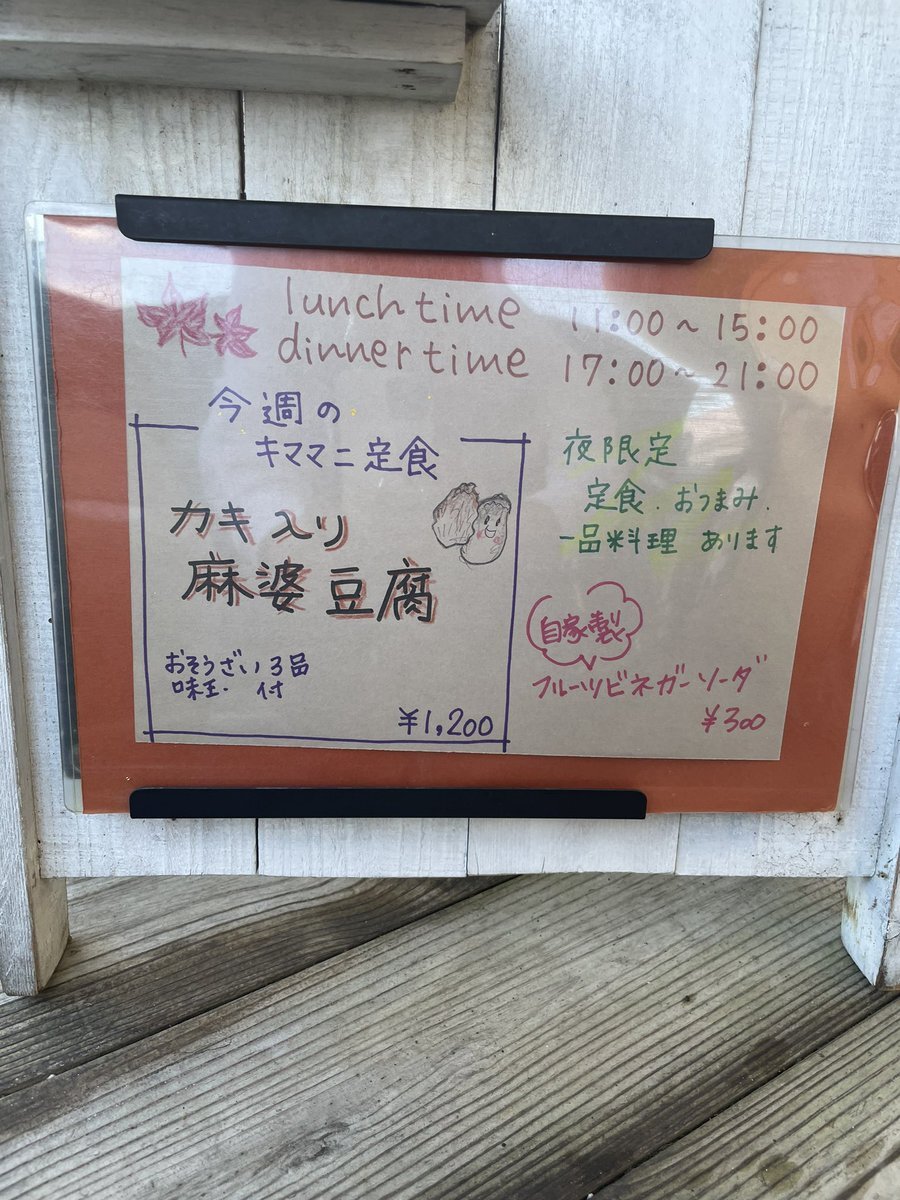 lunch time 11:00~15:00
dinner time 17:00~21:00
今週の
キママニ定食
カキ入り
麻婆豆腐
おそうざい3品
味玉 付
¥1,200
夜限定
定食.おつまみ.
一品料理 あります
自家製
フルーツビネガーソーダ
¥300